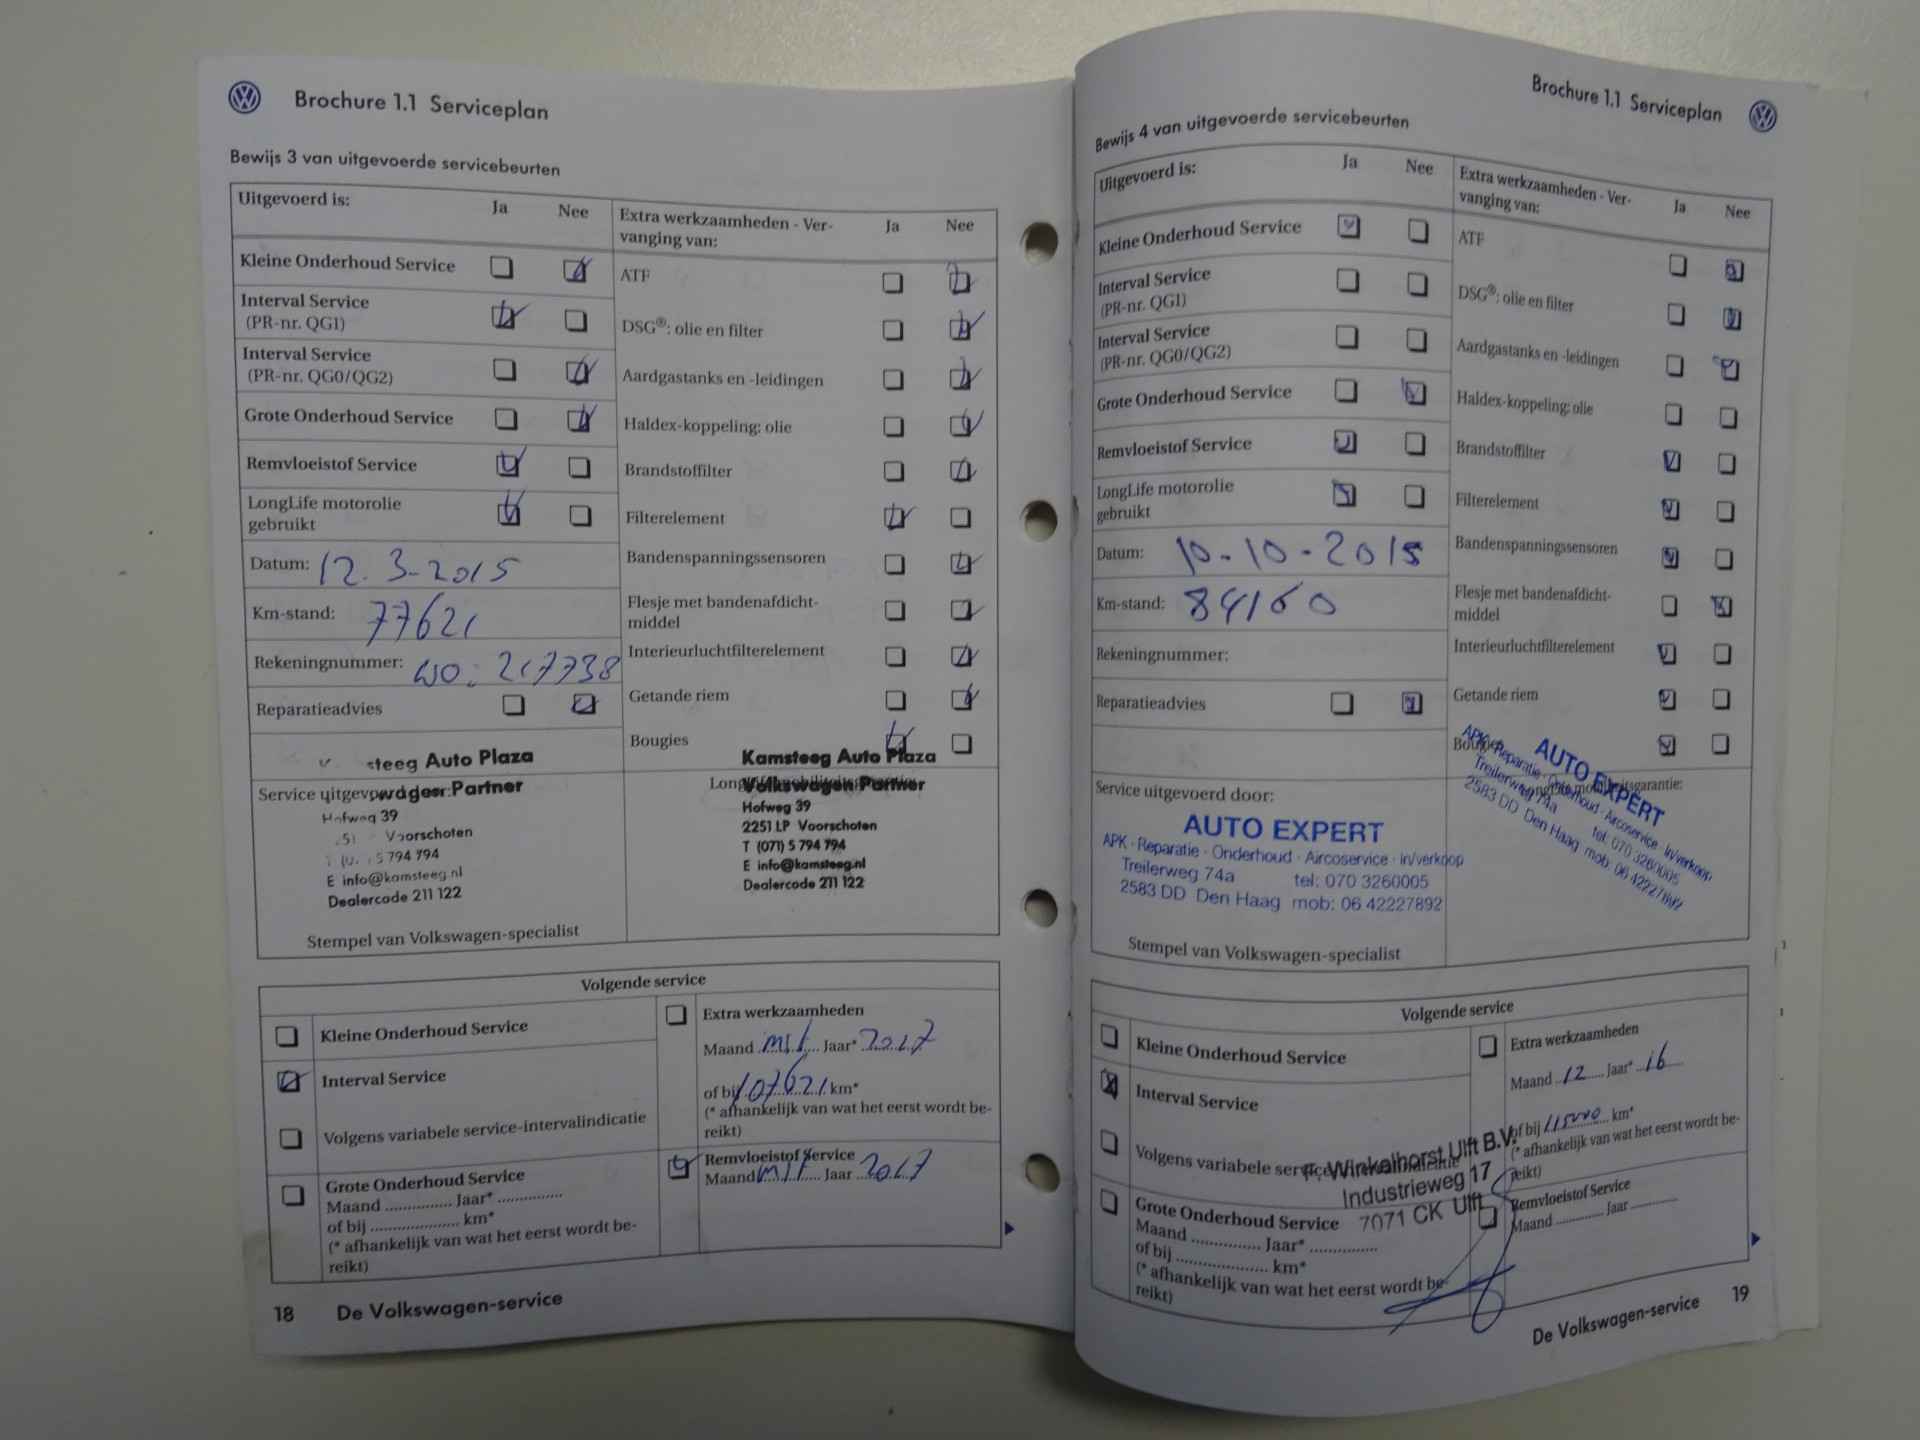 Brochure 1.1 Serviceplan
Bewijs 3 van uitgevoerde servicebeurten
Uitgevoerd is:
Ja
Nee
Kleine Onderhoud Service
Interval Service
(PR-nr. QG1)
Interval Service
(PR-nr. QG0/QG2)
Grote Onderhoud Service
Remvloeistof Service
LongLife motorolie
gebruikt
Datum: 12.3-2015
Km-stand: 77621
Rekeningnummer: WO: 217738
Reparatieadvies
Extra werkzaamheden - Ver-
vanging van:
Ja
Nee
ATF
DSG®: olie en filter
Aardgastanks en -leidingen
Haldex-koppeling: olie
Brandstoffilter
Filterelement
Bandenspanningssensoren
Flesje met bandenafdicht-
middel
Interieurluchtfilterelement
Getande riem
Bougies
steeg Auto Plaza
Service uitgevoerd door:
wagen Partner
Hofweg 39
Voorschoten
5 794 794
E info@kamsteeg.nl
Dealercode 211 122
Stempel van Volkswagen-specialist
Kamsteeg Auto Plaza
Volkswagen Partner
Hofweg 39
2251 LP Voorschoten
T (071) 5 794 794
E info@kamsteeg.nl
Dealercode 211 122
Volgende service
Kleine Onderhoud Service
Interval Service
Volgens variabele service-intervalindicatie
Grote Onderhoud Service
Maand ............. Jaar* .............
of bij .................... km*
(* afhankelijk van wat het eerst wordt be-
reikt)
Extra werkzaamheden
Maand mrt Jaar* 2017
of bij 107621 km*
(* afhankelijk van wat het eerst wordt be-
reikt)
Remvloeistof Service
Maand mrt Jaar 2017
18 De Volkswagen-service
Brochure 1.1 Serviceplan
Bewijs 4 van uitgevoerde servicebeurten
Uitgevoerd is:
Ja
Nee
Kleine Onderhoud Service
Interval Service
(PR-nr. QG1)
Interval Service
(PR-nr. QG0/QG2)
Grote Onderhoud Service
Remvloeistof Service
LongLife motorolie
gebruikt
Datum: 10-10-2015
Km-stand: 84160
Rekeningnummer:
Reparatieadvies
Extra werkzaamheden - Ver-
vanging van:
Ja
Nee
ATF
DSG®: olie en filter
Aardgastanks en -leidingen
Haldex-koppeling: olie
Brandstoffilter
Filterelement
Bandenspanningssensoren
Flesje met bandenafdicht-
middel
Interieurluchtfilterelement
Getande riem
Bougies
Service uitgevoerd door:
AUTO EXPERT
APK · Reparatie · Onderhoud · Aircoservice · in/verkoop
Treilerweg 74a tel: 070 3260005
2583 DD Den Haag mob: 06 42227892
Stempel van Volkswagen-specialist
AUTO EXPERT
APK · Reparatie · Onderhoud · Aircoservice · in/verkoop
Treilerweg 74a tel: 070 3260005
2583 DD Den Haag mob: 06 42227892
Volgende service
Kleine Onderhoud Service
Interval Service
Volgens variabele service-intervalindicatie
Grote Onderhoud Service
Maand ............. Jaar* .............
of bij .................... km*
(* afhankelijk van wat het eerst wordt be-
reikt)
Extra werkzaamheden
Maand 12 Jaar* 16
of bij 115000 km*
(* afhankelijk van wat het eerst wordt be-
reikt)
Remvloeistof Service
Maand ............. Jaar .............
Winkelhorst Ulft B.V.
Industrieweg 17
7071 CK Ulft
De Volkswagen-service 19